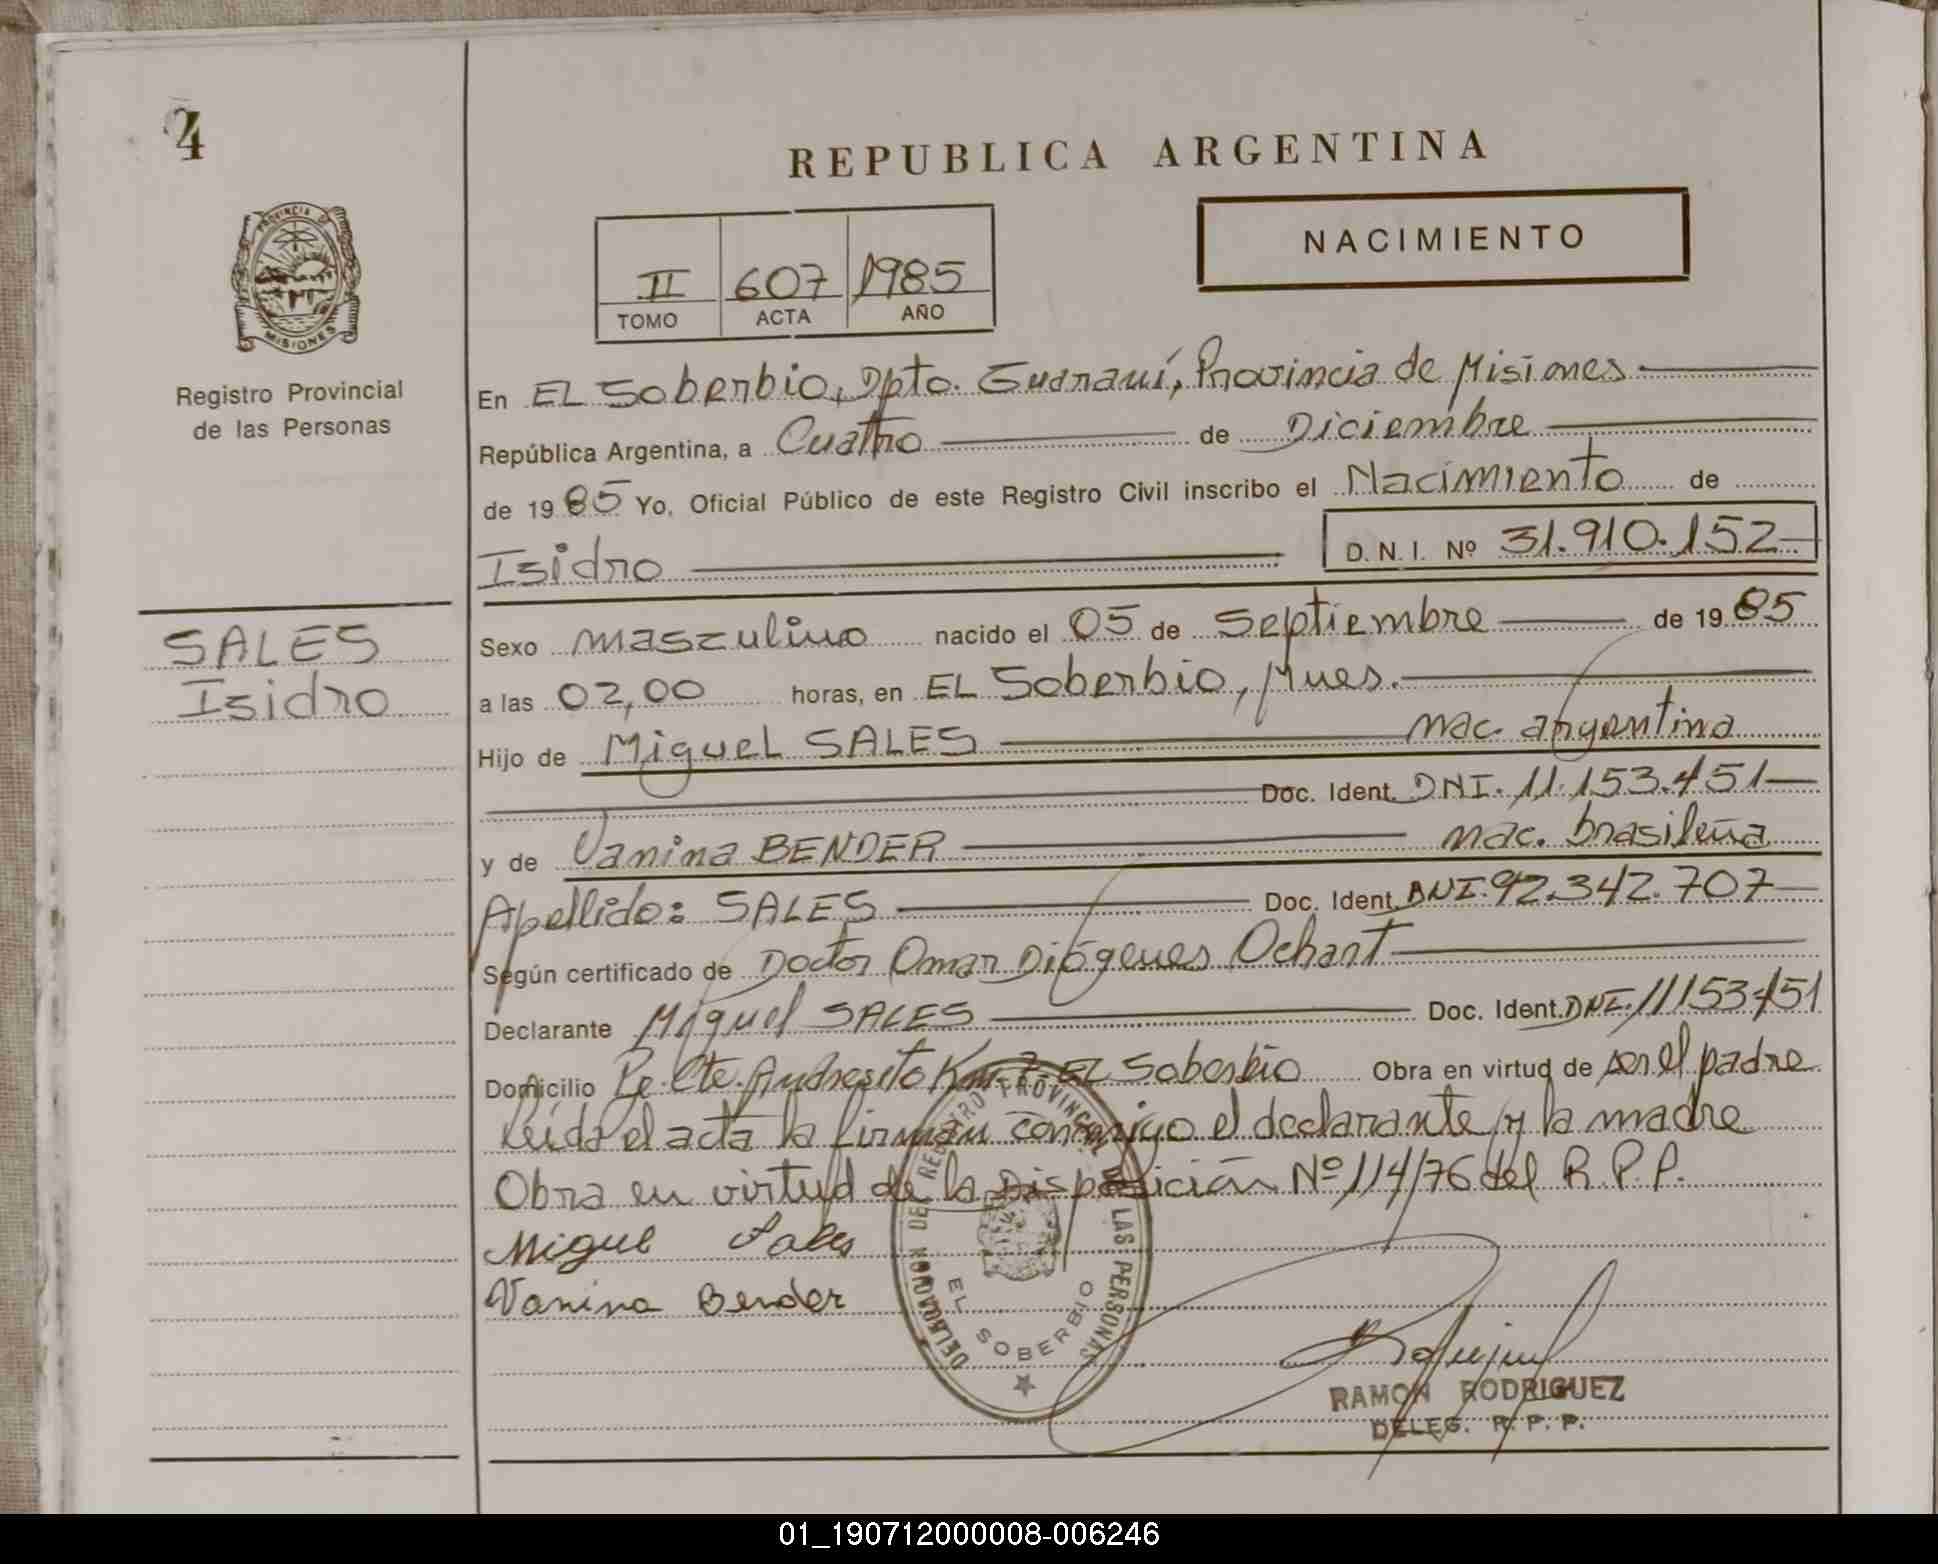 4
PROVINCIA DE
MISIONES
Registro Provincial
de las Personas
SALES
Isidro
REPUBLICA ARGENTINA
NACIMIENTO
II 607 1985
TOMO ACTA AÑO
En EL Soberbio, Dpto. Guaraní, Provincia de Misiones
República Argentina, a Cuatro de Diciembre
de 1985 Yo, Oficial Público de este Registro Civil inscribo el Nacimiento de
Isidro D.N.I. Nº 31.910.152
Sexo masculino nacido el 05 de Septiembre de 1985
a las 02,00 horas, en EL Soberbio, Mnes.
Hijo de Miguel SALES nac. argentina
Doc. Ident. DNI. 11.153.451
y de Vanina BENDER nac. brasileña
Apellido: SALES Doc. Ident. DNI. 92.342.707
Según certificado de Doctor Omar Diógenes Ochant
Declarante Miguel SALES Doc. Ident. DNI. 11153451
Domicilio Pje. Cte. Andresito Km. 7- EL Soberbio Obra en virtud de ser el padre
Leída el acta la firman conmigo el declarante y la madre
Obra en virtud de la Disposición Nº 114/76 del R.P.P.
Miguel Sales
Vanina Bender
DELEGACION DEL REGISTRO PROVINCIAL DE LAS PERSONAS
EL SOBERBIO
RAMON RODRIGUEZ
DELEG. R. P. P.
01_190712000008-006246